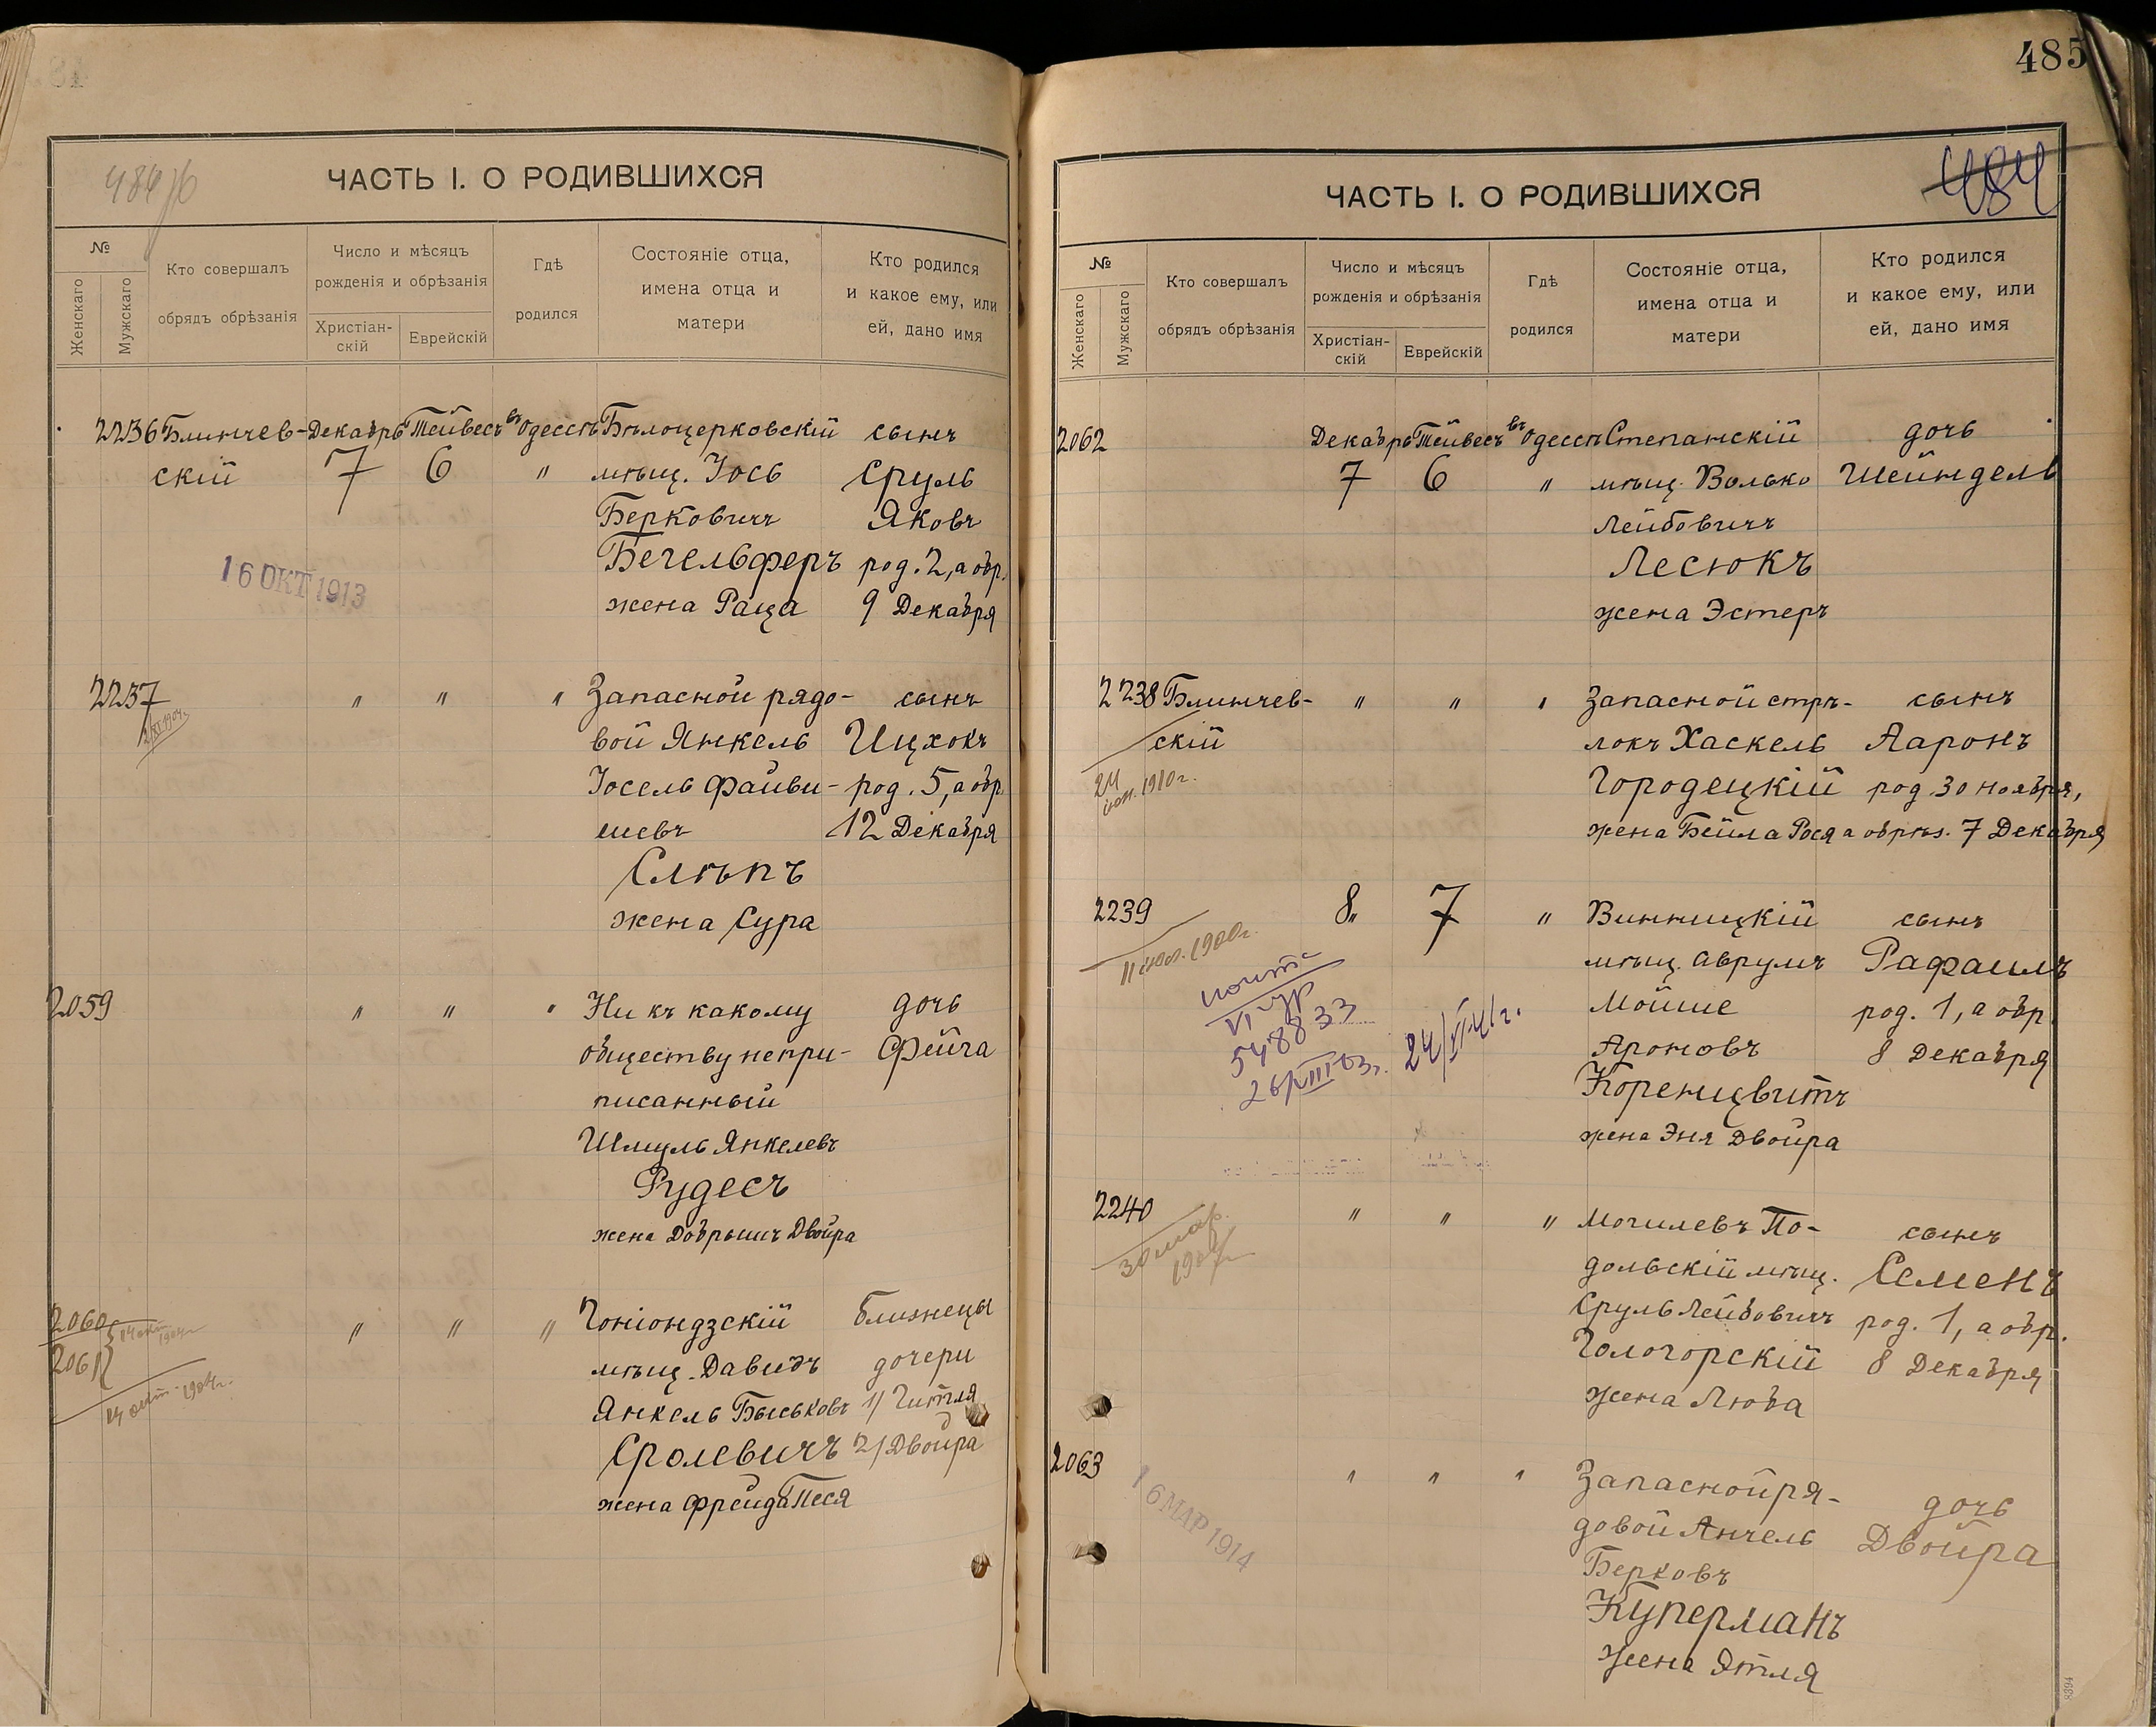 485
484об
ЧАСТЬ I. О РОДИВШИХСЯ
№
Женскаго
Мужскаго
Кто совершалъ
обрядъ обрѣзанія
Число и мѣсяцъ
рожденія и обрѣзанія
Христіан-
скій
Еврейскій
Гдѣ
родился
Состояніе отца,
имена отца и
матери
Кто родился
и какое ему, или
ей, дано имя
2236 Блинчев- Декабрь Тейвесъ въ Одессѣ Бѣлоцерковскій сынъ
скій 7 6 " мѣщ. Іось Сруль
Берковичъ Яковъ
Бегельферъ род. 2, а обр.
16 ОКТ 1913
жена Раца 9 Декабря
2237 " " " Запасной рядо- сынъ
вой Янкель Ицхокъ
Іосель Файви- род. 5, а обр.
шевъ 12 Декабря
Слѣпъ
жена Сура
2059 " " " Ни къ какому дочь
обществу непри- Фейга
писанный
Шмуль Янкелевъ
Рудесъ
жена Добрышъ Двойра
2060 " " " Гоніондзскій близнецы
14 окт. 1904г.
2061 мѣщ. Давидъ дочери
14 окт. 1904г.
Янкель Быськовъ 1/ Гитля
Сролевичъ 2/ Двойра
жена Фрейда Песя
ЧАСТЬ I. О РОДИВШИХСЯ
484
№
Женскаго
Мужскаго
Кто совершалъ
обрядъ обрѣзанія
Число и мѣсяцъ
рожденія и обрѣзанія
Христіан-
скій
Еврейскій
Гдѣ
родился
Состояніе отца,
имена отца и
матери
Кто родился
и какое ему, или
ей, дано имя
2062 Декабрь Тейвесъ въ Одессѣ Степанскій дочь
7 6 " мѣщ. Волько Шейндель
Лейбовичъ
Лесюкъ
жена Эстеръ
2238 Блинчев- " " " Запасной стрѣ- сынъ
скій локъ Хаскель Ааронъ
24
1910г.
Городецкій род. 30 ноября,
жена Бейла Рося а обрѣз. 7 Декабря
2239 8 " 7 " Винницкій сынъ
1900г.
мѣщ. Аврумъ Рафаилъ
Мойше род. 1, а обр.
548833
Ароновъ 8 Декабря
Коренцвитъ
жена Эня Двойра
2240 " " " Могилевъ По- сынъ
30 мар.
дольскій мѣщ. Семенъ
Сруль Лейбовичъ род. 1, а обр.
Гологорскій 8 Декабря
жена Люба
2063 " " " Запасной ря- дочь
16 МАР 1914
довой Анчель Двойра
Берковъ
Куперманъ
жена Этля
8394